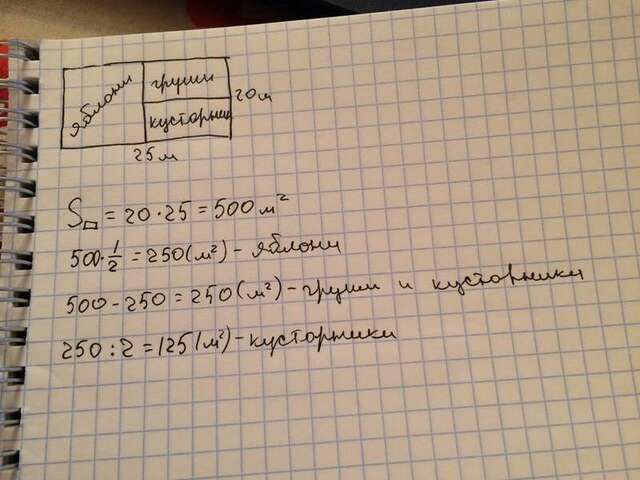 яблони
груши
20м
кусторник
25м
S▭ = 20·25 = 500 м²
500·1/2 = 250(м²) - яблони
500 - 250 = 250(м²) - груши и кусторники
250 : 2 = 125(м²) - кусторники